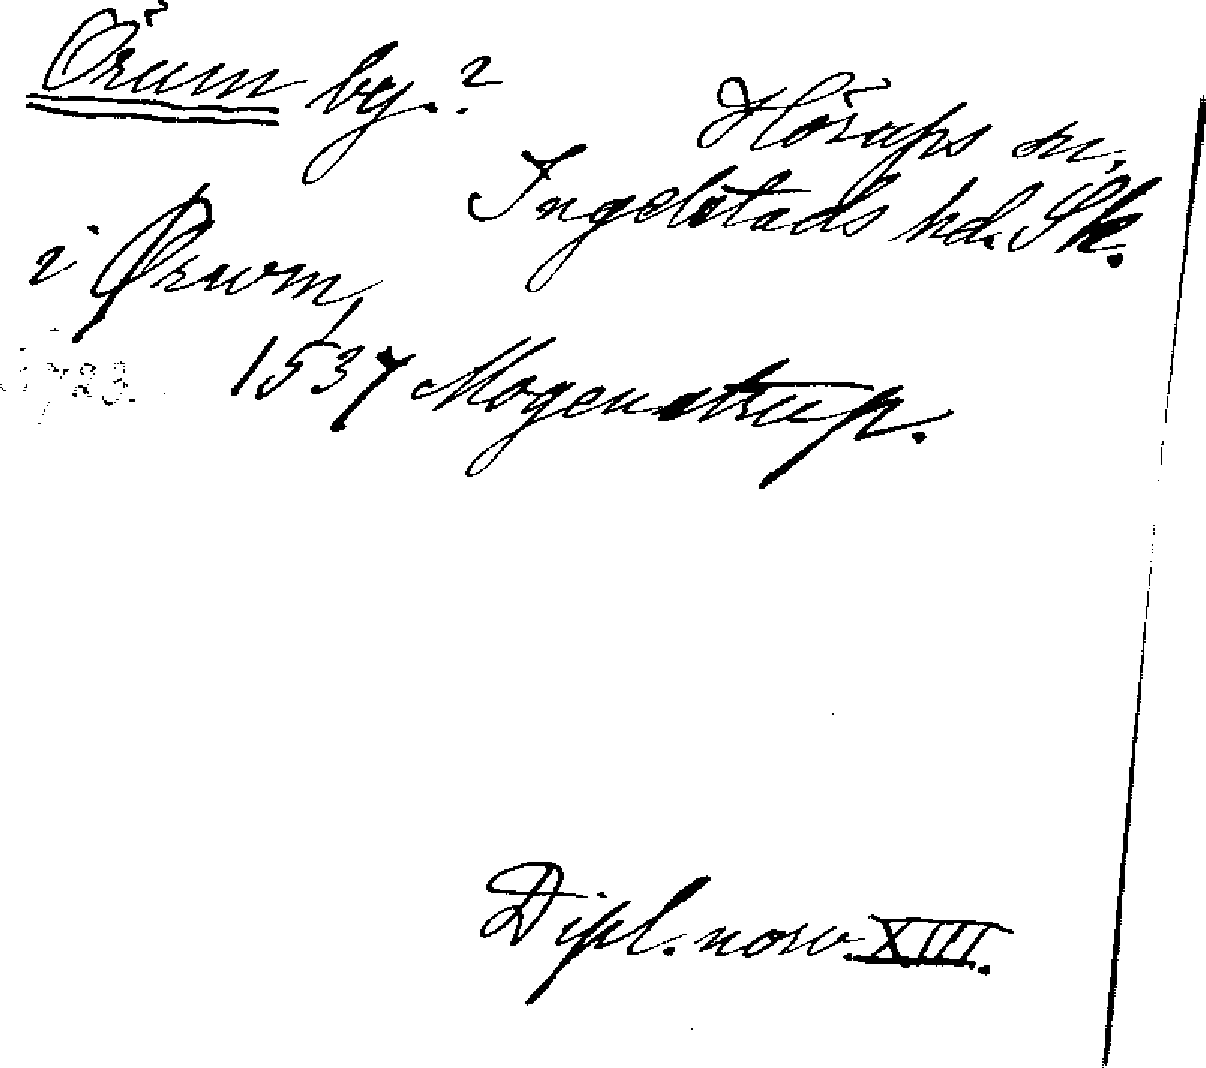 Örum by.?
Hörups sn,
Ingelstads hd. Sk.
i Ørwm,
1537 Mogenstrup.
Dipl. norv. XIII.